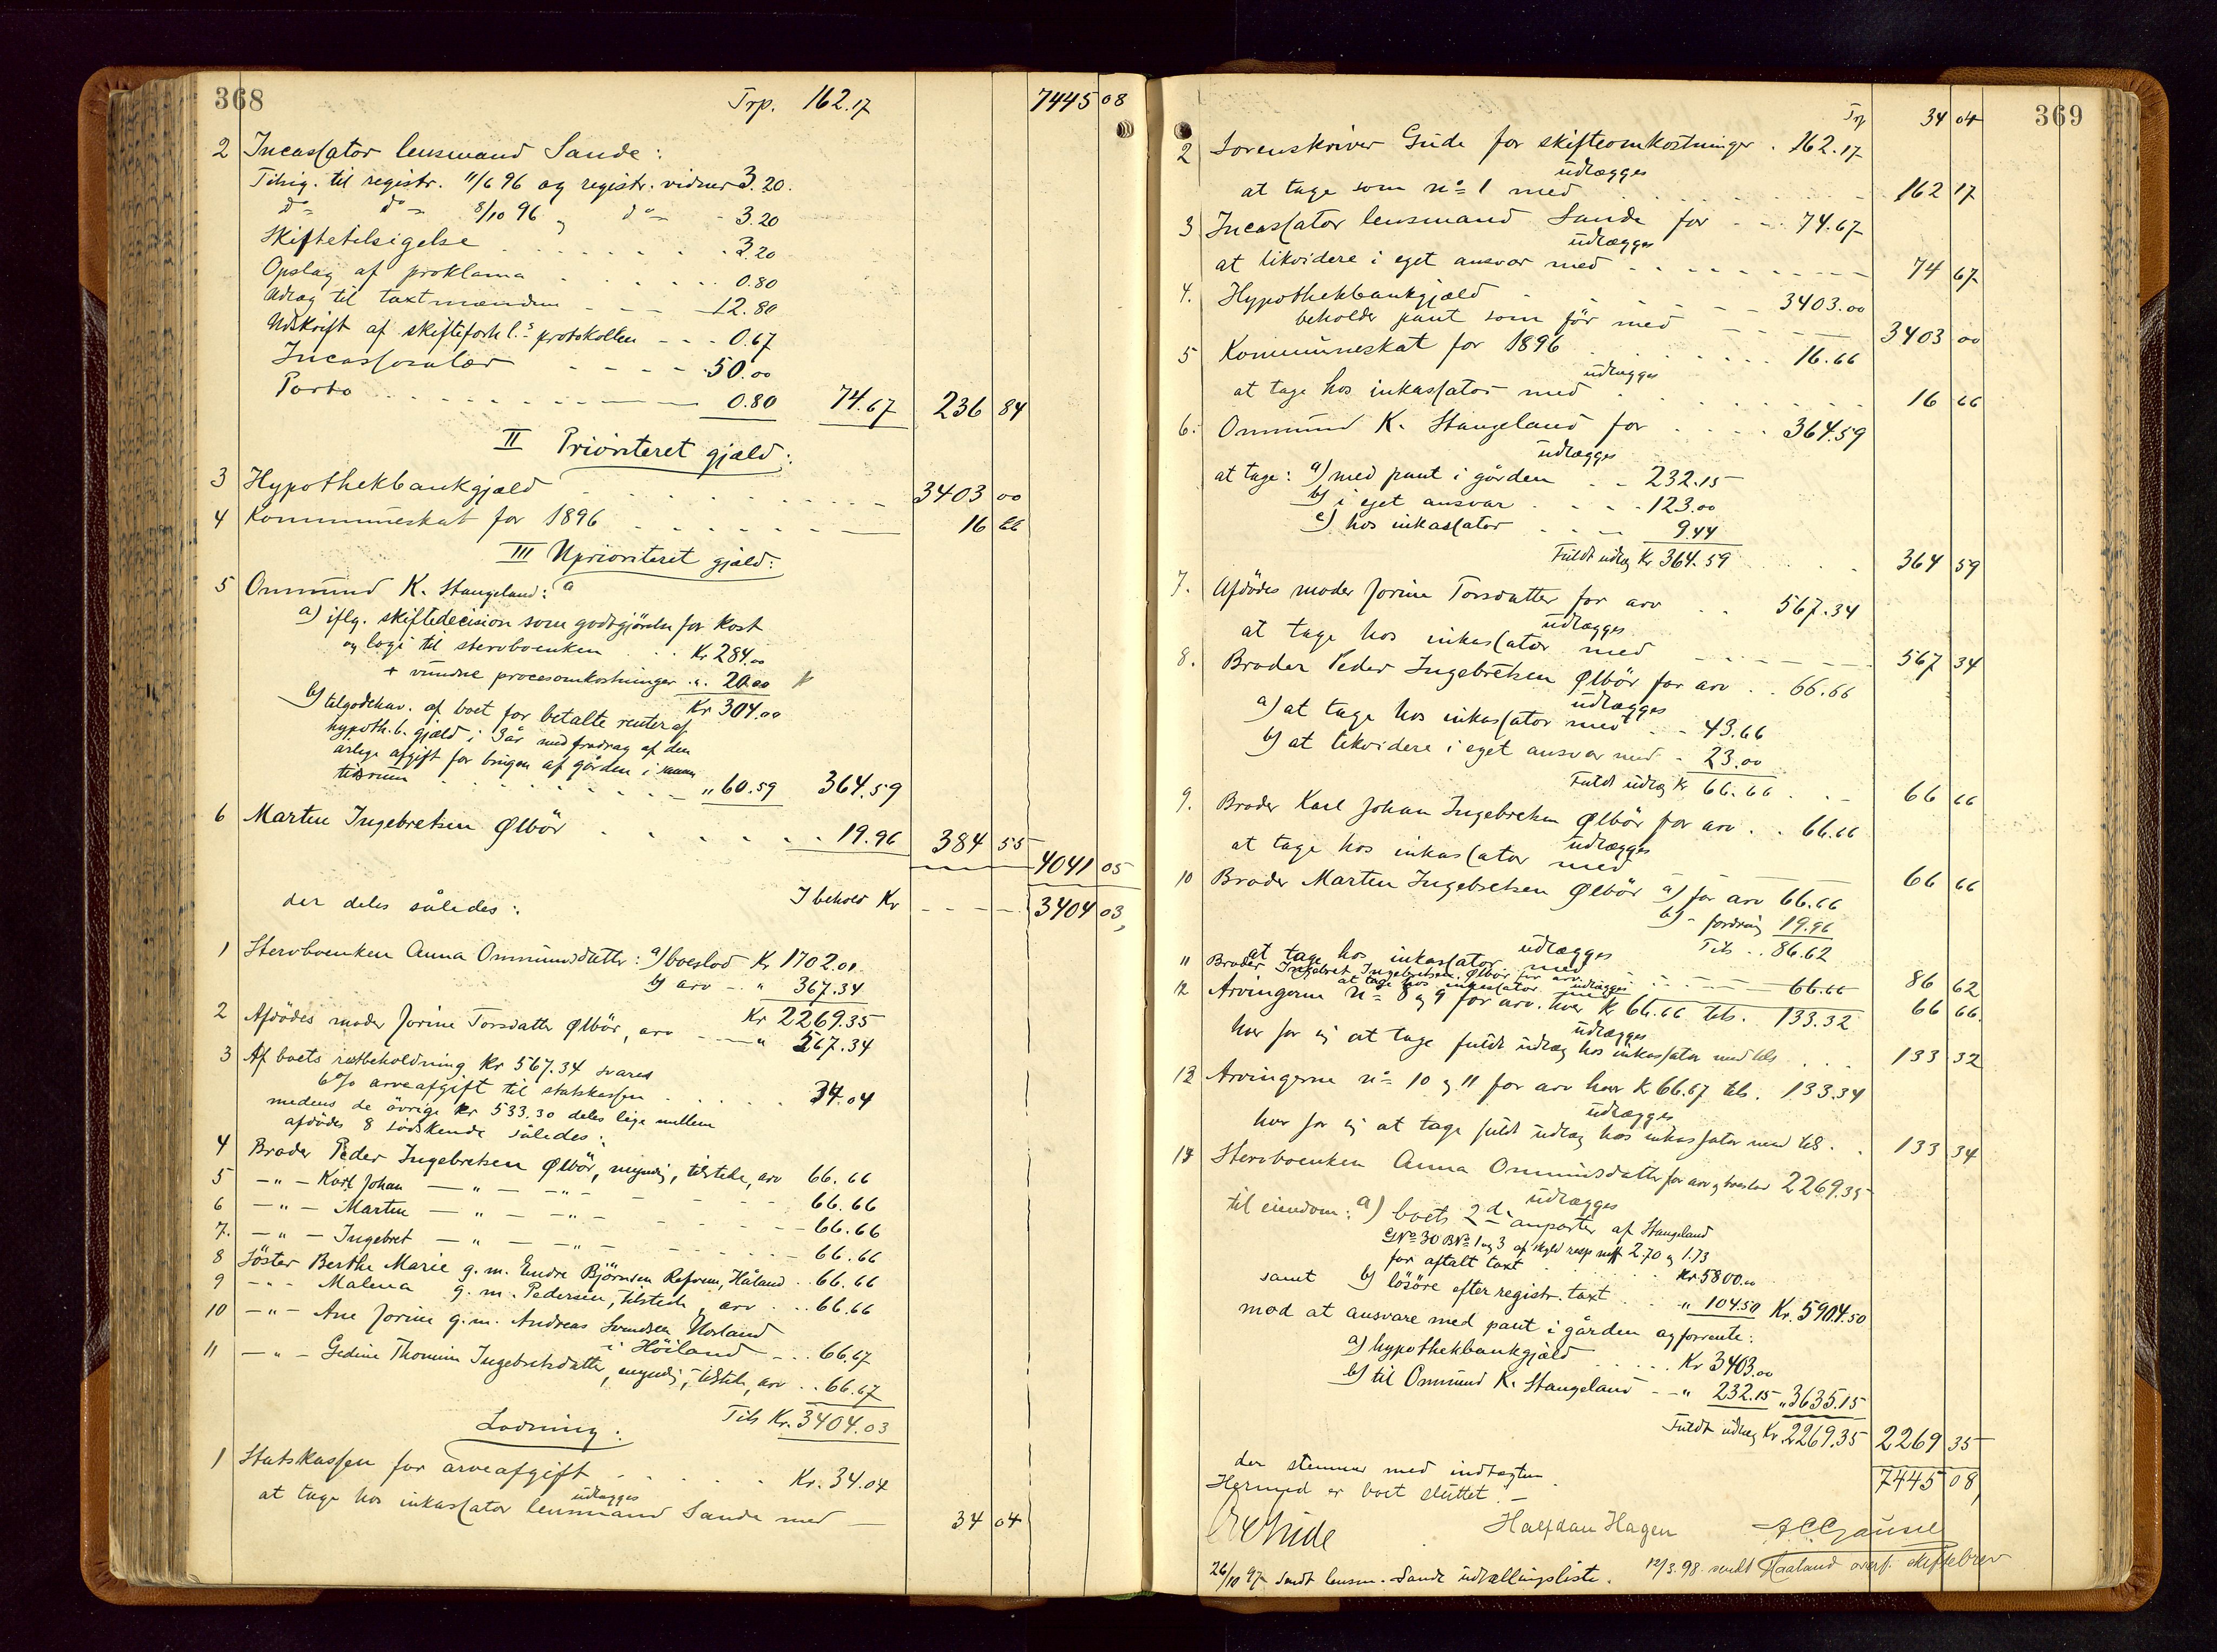 368
Trp. 162.17 7445 08
2 Incassator lensmand Sande:
Tilsig. til registr. 11/6 96 og registr. vidner 3.20.
do do 8/10 96 " do - 3.20
Skiftetilsigelse . . . . . . 3.20
Opslag af proklama . . . . . . 0.80
Udlæg til taxtmændene - - - - 12.80
Udskrift af skifteforhl.s protokollen - - - 0.67
Incassosalær - - - - - 50.00
Porto . . . . . 0.80 74.67 236 84
II Prioriteret gjæld:
3 Hypothekbankgjæld . . . . . . 3403 00
4 Kommuneskat for 1896 . . . . . 16 66
III Uprioriteret gjæld:
5 Ommund K. Stangeland:
a) iflg. skiftedecision som godtgjörelse for kost
og logi til stervboenken . . Kr 284.00
+ vundne procesomkostninger . ". 20.00
Kr 304.00
b) tilgodehav. af boet for betalte renter af
hypoth.b. gjæld i 3 år med fradrag af den
årlige afgift for brugen af gården i samme
tidsrum . . . . . . . " 60.59 364.59
6 Martin Ingebretsen Ølbör . . . . . . 19.96 384 55
4041 05
I behold Kr - - - - 3404 03,
der deles således:
1 Stervboenken Anna Ommundsdatter: a) boeslod Kr 1702.01
b) arv - " 367.34
Kr 2269.35
2 Afdödes moder Jorine Torsdatter Ølbör, arv - - - " 567.34
3 Af boets restbeholdning Kr 567.34 svares
6% arveafgift til statskassen . . . . . . 34.04
medens de övrige Kr 533.30 deles lige mellem
afdödes 8 södskende således:
4 Broder Peder Ingebretsen Ølbör, myndig, tilstede, arv 66.66
5 - " - Karl Johan - " - - " - 66.66
6 - " - Martin - " - - " - 66.66
7. - " - Ingebret - " - - " - 66.66
8 Söster Berthe Marie g. m. Endre Björnsen Refvem, Håland . . 66.66
9 - " - Malena g. m. Pedersen, tilstede, arv . . . 66.66
10 - " - Ane Jorine g. m. Andreas Svendsen Norland
i Höiland - . . 66.67
11 - " - Gedine Thomine Ingebretsdatter, myndig, tilstede, arv . . 66.67
Tils Kr. 3404.03
Lodning:
1 Statskassen for arveafgift - . . . . . Kr. 34.04
udlægges
at tage hos inkassator lensmand Sande med - 34 04
369
Trp 34 04
2 Sorenskriver Gude for skifteomkostninger . 162.17
udlægges
at tage som no 1 med . . . . . . 162 17
3 Incassator lensmand Sande for - - - 74.67
udlægges
at likvidere i eget ansvar med - - - - - - 74 67
4. Hypothekbankgjæld - - - - 3403.00
beholder pant som för med - - - - - 3403 00
5 Kommuneskat for 1896 . . . . . . 16.66
udlægges
at tage hos inkassator med . . . . . . 16 66
6. Ommund K. Stangeland for . . . . . 364.59
udlægges
at tage: a) med pant i gården . . - 232.15
b) i eget ansvar . . . . 123.00
c) hos inkassator . . . - 9.44
Fuldt udlæg Kr 364.59 . . . 364 59
7. Afdödes moder Jorine Torsdatter for arv . . 567.34
udlægges
at tage hos inkassator med - - - - - - 567 34
8. Broder Peder Ingebretsen Ølbör for arv . . 66.66
udlægges
a) at tage hos inkassator med - - 43.66
b) at likvidere i eget ansvar med - 23.00
Fuldt udlæg Kr 66.66 . . - 66 66
9. Broder Karl Johan Ingebretsen Ølbör for arv . . 66.66
udlægges
at tage hos inkassator med 66 66
10 Broder Martin Ingebretsen Ølbör a) for arv 66.66
b) - fordring 19.96
Tils . . 86.62
udlægges
at tage hos inkassator med - - - - 86 62
11 Broder Ingebret Ingebretsen Ølbör for arv - - - 66.66
at tage hos inkassator udlægges med 66 66.
12 Arvingerne no 8 og 9 for arv. hver Kr 66.66 tils. 133.32
udlægges
hver for sig at tage fuldt udlæg hos inkassator med tils . . . 133 32
13 Arvingerne no 10 og 11 for arv hver Kr 66.67 tils. 133.34
udlægges
hver for sig at tage fuldt udlæg hos inkassator med tils . . 133 34
14 Stervboenken Anna Ommundsdatter for arv og boeslod 2269.35
udlægges
til eiendom: a) boets 2de anparter af Stangeland
GNo 30 BNo 1 og 3 af skyld resp mk 2.70 og 1.73
for aftalt taxt . . . . . Kr 5800.00
samt b) lösöre efter registr. taxt . . " 104.50 Kr. 5904.50
mod at ansvare med pant i gården og forrente:
a) hypothekbankgjæld . . . . . Kr 3403.00
b) til Ommund K. Stangeland - - " 232.15 " 3635.15
Fuldt udlæg Kr. 2269.35 2269 35
der stemmer med indtægten . 7445 08,
Hermed er boet sluttet. -
Gude Halfdan Hagen
26/10 97 sendt lensm. Sande udlællingsliste. 12/3.98. sendt Haaland overf. skiftebrev